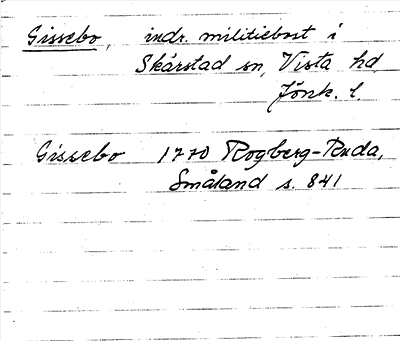 Gissebo, indr. militiebost i
Skärstad sn, Vista hd,
Jönk. l.
Gissebo 1770 Rogberg-Ruda,
Småland s. 841